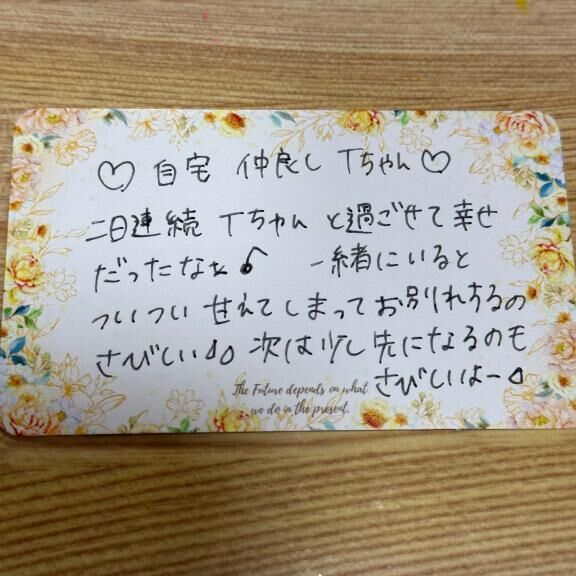 ♡ 自宅 仲良し Tちゃん ♡
二日連続 Tちゃん と過ごせて幸せ
だったなぁ♪ 一緒にいると
ついつい甘えてしまってお別れするの
さびしい💧💧 次は少し先になるのも
さびしいよー💧
The Future depends on what
we do in the present.